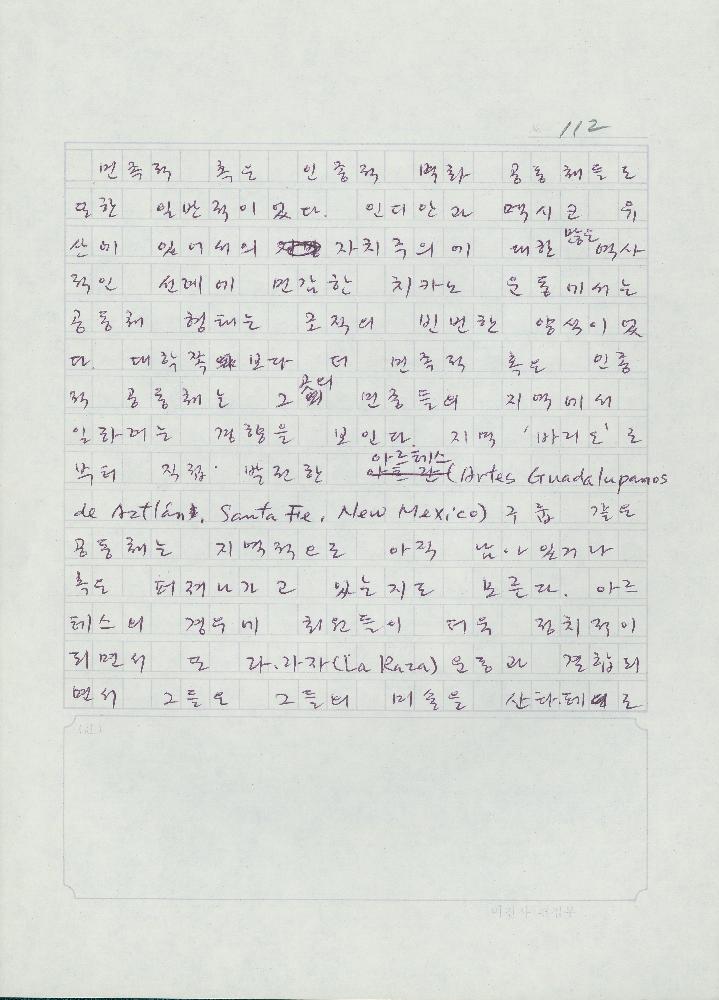 112
민족적 혹은 인종적 벽화 공동체들도
또한 일반적이었다. 인디안과 멕시코 유
산에 있어서의 자치주의에 대한 많은 역사
적인 선례에 민감한 치카노 운동에서는
공동체 형태는 조직의 빈번한 양식이었
다. 대학쪽 보다 더 민족적 혹은 인종
적 공동체는 그곳의 민중들의 지역에서
일하려는 경향을 보인다. 지역 '바리오'로
부터 직접 발전한 아르테스 (Artes Guadalupanos
de Aztlán, Santa Fe, New Mexico) 구룹 같은
공동체는 지역적으로 아직 남아있거나
혹은 퍼져나가고 있는지도 모른다. 아르
테스의 경우에 회원들이 더욱 정치적이
되면서 또 라.라자(La Raza) 운동과 결합되
면서 그들은 그들의 미술을 산타.페로
(주)
미진사 편집부